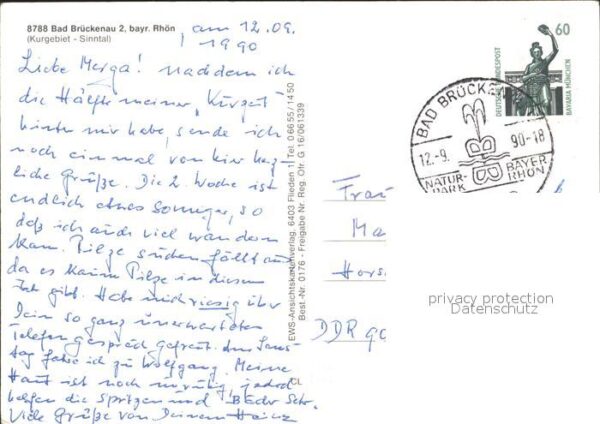 8788 Bad Brückenau 2, bayr. Rhön
(Kurgebiet - Sinntal)
am 12.09.
1990
Liebe Merga! Nachdem ich
die Hälfte meiner "Kurzeit"
hinter mir habe, sende ich
noch einmal von hier herz-
liche Grüße. Die 2. Woche ist
endlich etwas sonniger, so
daß ich auch viel wandern
kann. Pilze suchen fällt aus
da es kaum Pilze in diesem
Jahr gibt. Habe mich riesig über
Dein so ganz unerwartetes
Telefongespräch gefreut. Am Sams-
tag fahre ich zu Wolfgang. Meine
Haut ist noch unruhig, jedoch
helfen die Spritzen und Bäder sehr.
Viele Grüße von Deinem Heinz
EWS-Ansichtskartenverlag, 6403 Flieden 1 Tel. 06655/1450
Best.-Nr. 0176 - Freigabe Nr. Reg. Ofr. G 16/061339
CL
60
DEUTSCHE BUNDESPOST
BAVARIA MÜNCHEN
BAD BRÜCKE
12.-9. 90-18
NATUR-
PARK
BAYER.
RHÖN
Frau
Ma
Hors
DDR
privacy protection
Datenschutz